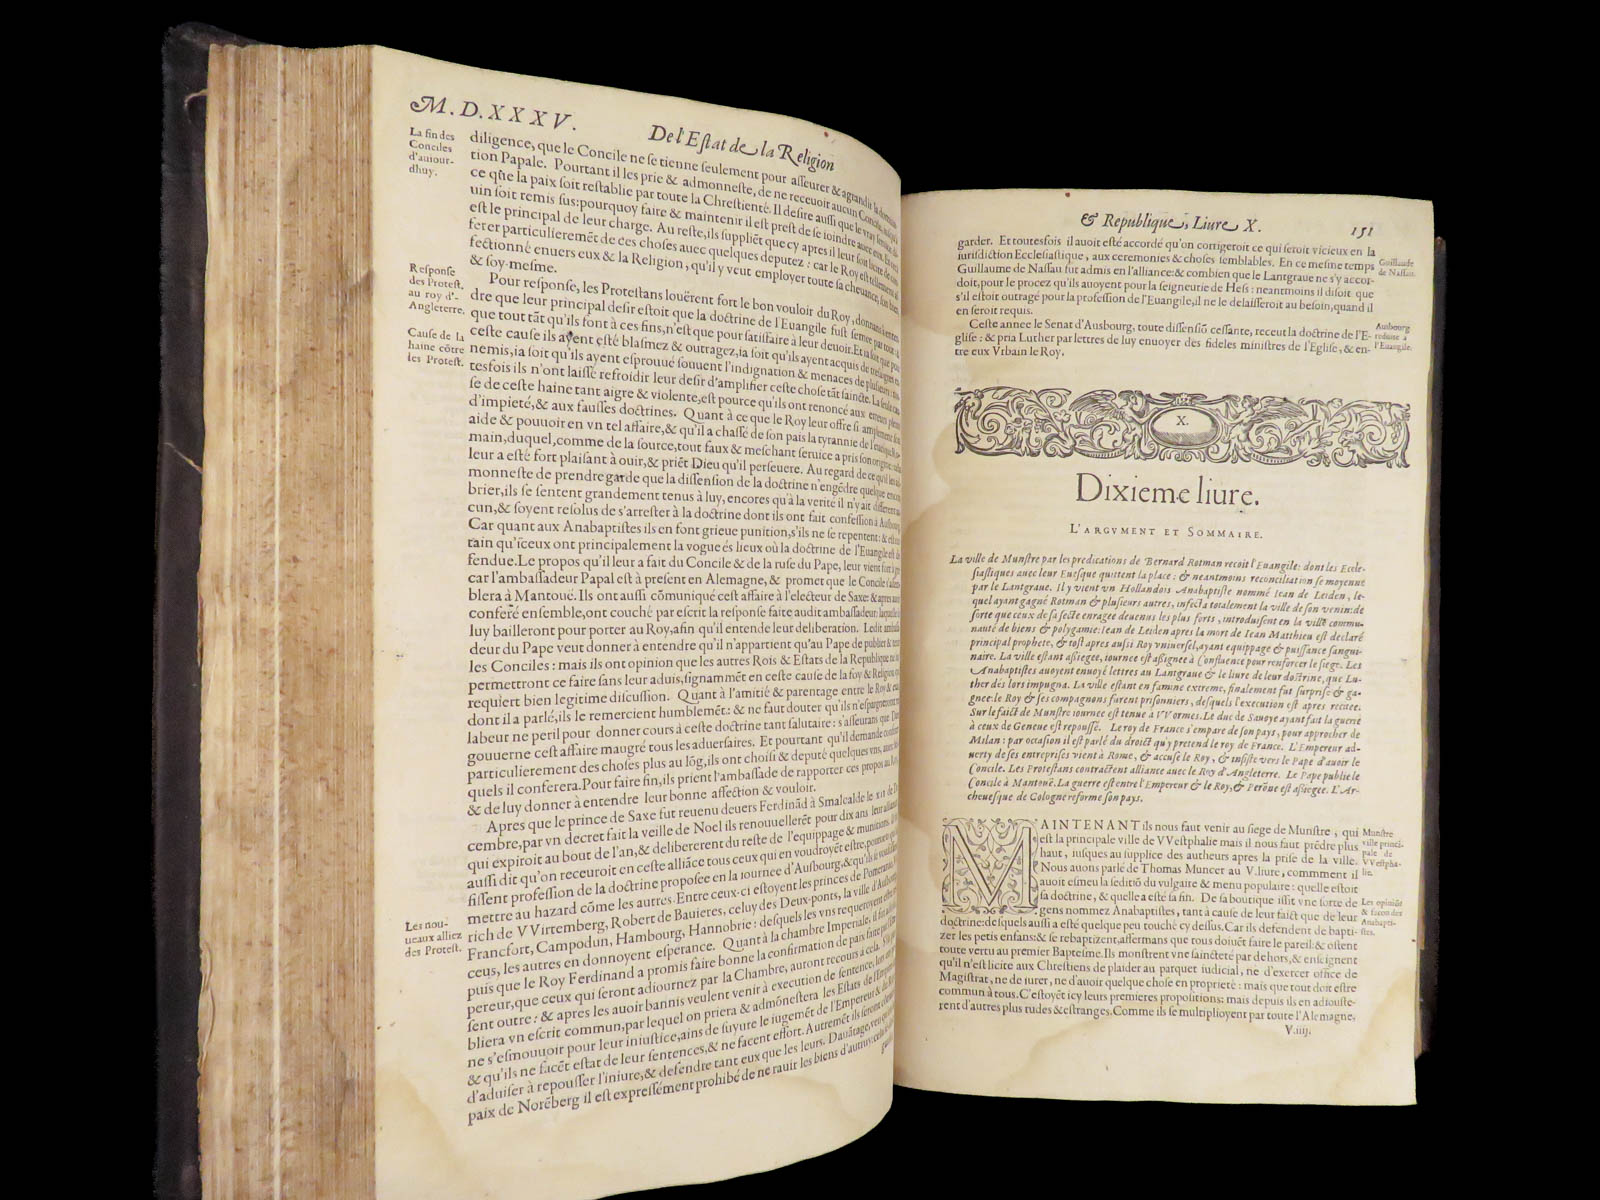 M. D. XXXV.
De l'Estat de la Religion
La fin des
Conciles
d'auiour-
dhuy.
diligence, que le Concile ne se tienne seulement pour asseurer & agrandir la domina-
tion Papale. Pourtant il les prie & admonneste, de ne receuoir aucun Concile,
ce que la paix soit restablie par toute la Chrestienté. Il desire aussi que le vray seruice
uin soit remis sus: pourquoy faire & maintenir il est prest de se ioindre auec eux.
est le principal de leur charge. Au reste, ils supplient que cy apres il leur soit licite de con-
ferer particulieremēt de ces choses auec quelques deputez: car le Roy est tellement af-
fectionné enuers eux & la Religion, qu'il y veut employer toute sa cheuance,
& soy-mesme.
Response
des Protest.
au roy d'-
Angleterre.
Cause de la
haine cōtre
les Protest.
Pour response, les Protestans louërent fort le bon vouloir du Roy, donnans à enten-
dre que leur principal desir estoit que la doctrine de l'Euangile fust semee par tout: &
que tout tāt qu'ils font à ces fins, n'est que pour satisfaire à leur deuoir. Et ia soit que pour
ceste cause ils ayent esté blasmez & outragez, ia soit qu'ils ayent acquis de
nemis, ia soit qu'ils ayent esprouué souuent l'indignation & menaces de plusieurs: tou-
tesfois ils n'ont laissé refroidir leur desir d'amplifier ceste chose tāt saincte. La seule cau-
se de ceste haine tant aigre & violente, est pource qu'ils ont renoncé aux erreurs pleins
d'impieté, & aux fausses doctrines. Quant à ce que le Roy leur offre si amplement son
aide & pouuoir en vn tel affaire, & qu'il a chassé de son païs la tyrannie de l'euesque Ro-
main, duquel, comme de la source, tout faux & meschant seruice a pris son origine:
leur a esté fort plaisant à ouir, & priēt Dieu qu'il perseuere. Au regard de ce qu'il les ad-
monneste de prendre garde que la dissension de la doctrine n'engēdre quelque encom-
brier, ils se sentent grandement tenus à luy, encores qu'à la verité il n'y ait different au-
cun, & soyent resolus de s'arrester à la doctrine dont ils ont fait confession à Ausbourg.
Car quant aux Anabaptistes ils en font grieue punition, s'ils ne se repentent: & est cer-
tain qu'iceux ont principalement la vogue és lieux où la doctrine de l'Euangile est de-
fendue. Le propos qu'il leur a fait du Concile & de la ruse du Pape, leur vient fort à gré:
car l'ambassadeur Papal est à present en Alemagne, & promet que le Concile s'assem-
blera à Mantouë. Ils ont aussi cōmuniqué cest affaire à l'electeur de Saxe: & apres auoir
conferé ensemble, ont couché par escrit la response faite audit ambassadeur: laquelle ils
luy bailleront pour porter au Roy, afin qu'il entende leur deliberation. Ledit ambassa-
deur du Pape veut donner à entendre qu'il n'appartient qu'au Pape de publier & tenir
les Conciles: mais ils ont opinion que les autres Rois & Estats de la Republique ne luy
permettront ce faire sans leur aduis, signammēt en ceste cause de la foy & Religion, qui
requiert bien legitime discussion. Quant à l'amitié & parentage entre le Roy & eux,
dont il a parlé, ils le remercient humblemēt: & ne faut douter qu'ils n'espargneront ny
labeur ne peril pour donner cours à ceste doctrine tant salutaire: s'asseurans que Dieu
gouuerne cest affaire maugré tous les aduersaires. Et pourtant qu'il demande conferer
particulierement des choses plus au lōg, ils ont choisi & deputé quelques vns, auec les-
quels il conferera. Pour faire fin, ils prient l'ambassade de rapporter ces propos au Roy,
& de luy donner à entendre leur bonne affection & vouloir.
Les nou-
ueaux alliez
des Protest.
Apres que le prince de Saxe fut reuenu deuers Ferdinād à Smalcalde le xii de De-
cembre, par vn decret fait la veille de Noel ils renouuellerēt pour dix ans leur alliance
qui expiroit au bout de l'an, & delibererent du reste de l'equippage & munitions.
aussi dit qu'on receuroit en ceste alliāce tous ceux qui en voudroyēt estre,
fissent profession de la doctrine proposee en la iournee d'Ausbourg, & qu'ils
mettre au hazard cōme les autres. Entre ceux-ci estoyent les princes de Pomeranie,
rich de VVirtemberg, Robert de Bauieres, celuy des Deux-ponts, la ville d'Ausbourg,
Francfort, Campodun, Hambourg, Hannobrie: desquels les vns requeroyent estre re-
ceus, les autres en donnoyent esperance. Quant à la chambre Imperiale, il fut
puis que le Roy Ferdinand a promis faire bonne la confirmation de paix faite par l'Em-
pereur, que ceux qui seront adiournez par la Chambre, auront recours à cela.
sent outre: & apres les auoir bannis veulent venir à execution de sentence,
bliera vn escrit commun, par lequel on priera & admōnestera les Estats de l'Empire
ne s'esmouuoir pour leur iniustice, ains de suyure le iugemēt de l'Empereur & du Roy
& qu'ils ne facēt estat de leur sentences, & ne facent effort. Autremēt ils seront
d'aduiser à repousser l'iniure, & defendre tant eux que les leurs. Dauātage,
paix de Norēberg il est expressément prohibé de ne rauir les biens d'autruy:
& Republique, Liure X.
151
garder. Et toutesfois il auoit esté accordé qu'on corrigeroit ce qui seroit vicieux en la
iurisdiction Ecclesiastique, aux ceremonies & choses semblables. En ce mesme temps
Guillaume de Nassau fut admis en l'alliance: & combien que le Lantgraue ne s'y accor-
doit, pour le procez qu'ils auoyent pour la seigneurie de Hess: neantmoins il disoit que
s'il estoit outragé pour la profession de l'Euangile, il ne le delaisseroit au besoin, quand il
en seroit requis.
Guillaude
de Nassau.
Ceste annee le Senat d'Ausbourg, toute dissensiō cessante, receut la doctrine de l'E-
glise: & pria Luther par lettres de luy enuoyer des fideles ministres de l'Eglise, & en-
tre eux Vrbain le Roy.
Ausbourg
reduite à
l'Euangile.
X.
Dixieme liure.
L'ARGVMENT ET SOMMAIRE.
La ville de Munstre par les predications de Bernard Rotman recoit l'Euangile: dont les Eccle-
siastiques auec leur Euesque quittent la place: & neantmoins reconciliation se moyenne
par le Lantgraue. Il y vient vn Hollandois Anabaptiste nommé Iean de Leiden, le-
quel ayant gagné Rotman & plusieurs autres, infecta totalement la ville de son venin: de
sorte que ceux de sa secte enragee deuenus les plus forts, introduisent en la ville commu-
nauté de biens & polygamie: Iean de Leiden apres la mort de Iean Matthieu est declaré
principal prophete, & tost apres aussi Roy vniuersel, ayant equippage & puissance sangui-
naire. La ville estant assiegee, iournee est assignee à Confluence pour renforcer le siege. Les
Anabaptistes auoyent enuoyé lettres au Lantgraue & le liure de leur doctrine, que Lu-
ther dés lors impugna. La ville estant en famine extreme, finalement fut surprise & ga-
gnee: le Roy & ses compagnons furent prisonniers, desquels l'execution est apres recitee.
Sur le faict de Munstre iournee est tenue à VVormes. Le duc de Sauoye ayant fait la guerre
à ceux de Geneue est repoussé. Le roy de France s'empare de son pays, pour approcher de
Milan: par occasion il est parlé du droict qu'y pretend le roy de France. L'Empereur ad-
uerty de ses entreprises vient à Rome, & accuse le Roy, & insiste vers le Pape d'auoir le
Concile. Les Protestans contractent alliance auec le Roy d'Angleterre. Le Pape publie le
Concile à Mantouë. La guerre est entre l'Empereur & le Roy, & Peróne est assiegee. L'Ar-
cheuesque de Cologne reforme son pays.
MAINTENANT ils nous faut venir au siege de Munstre, qui
est la principale ville de VVestphalie mais il nous faut prēdre plus
haut, iusques au supplice des autheurs apres la prise de la ville.
Nous auons parlé de Thomas Muncer au V. liure, commment il
auoit esmeu la seditiō du vulgaire & menu populaire: quelle estoit
sa doctrine, & quelle a esté sa fin. De sa boutique issit vne sorte de
gens nommez Anabaptistes, tant à cause de leur faict que de leur
doctrine: desquels aussi a esté quelque peu touché cy dessus. Car ils defendent de bapti-
zer les petis enfans: & se rebaptizent, affermans que tous doiuēt faire le pareil: & ostent
toute vertu au premier Baptesme. Ils monstrent vne saincteté par dehors, & enseignent
qu'il n'est licite aux Chrestiens de plaider au parquet iudicial, ne d'exercer office de
Magistrat, ne de iurer, ne d'auoir quelque chose en proprieté: mais que tout doit estre
commun à tous. C'estoyēt icy leurs premieres propositions: mais depuis ils en adiouste-
rent d'autres plus rudes & estranges. Comme ils se multiplioyent par toute l'Alemagne,
Munstre
ville princi-
pale de
VVestpha-
lie.
Les opiniōs
& facon des
Anabapti-
stes.
V.iiij.